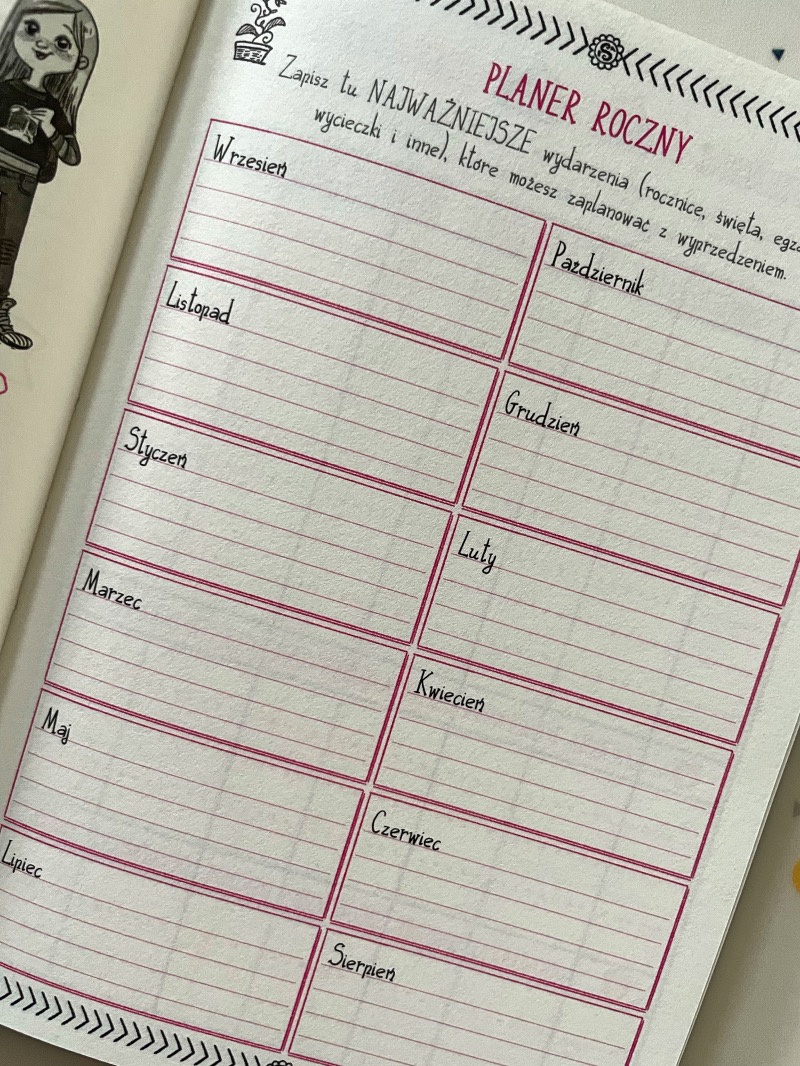 6
PLANER ROCZNY
Zapisz tu NAJWAŻNIEJSZE wydarzenia (rocznice, święta,
wycieczki i inne), które możesz zaplanować z wyprzedzeniem.
Wrzesień
Październik
Listopad
Grudzień
Styczeń
Luty
Marzec
Kwiecień
Maj
Czerwiec
Lipiec
Sierpień